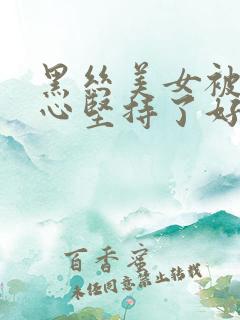 黑丝美女被
心坚持了好
百香蜜
未经同意禁止转载